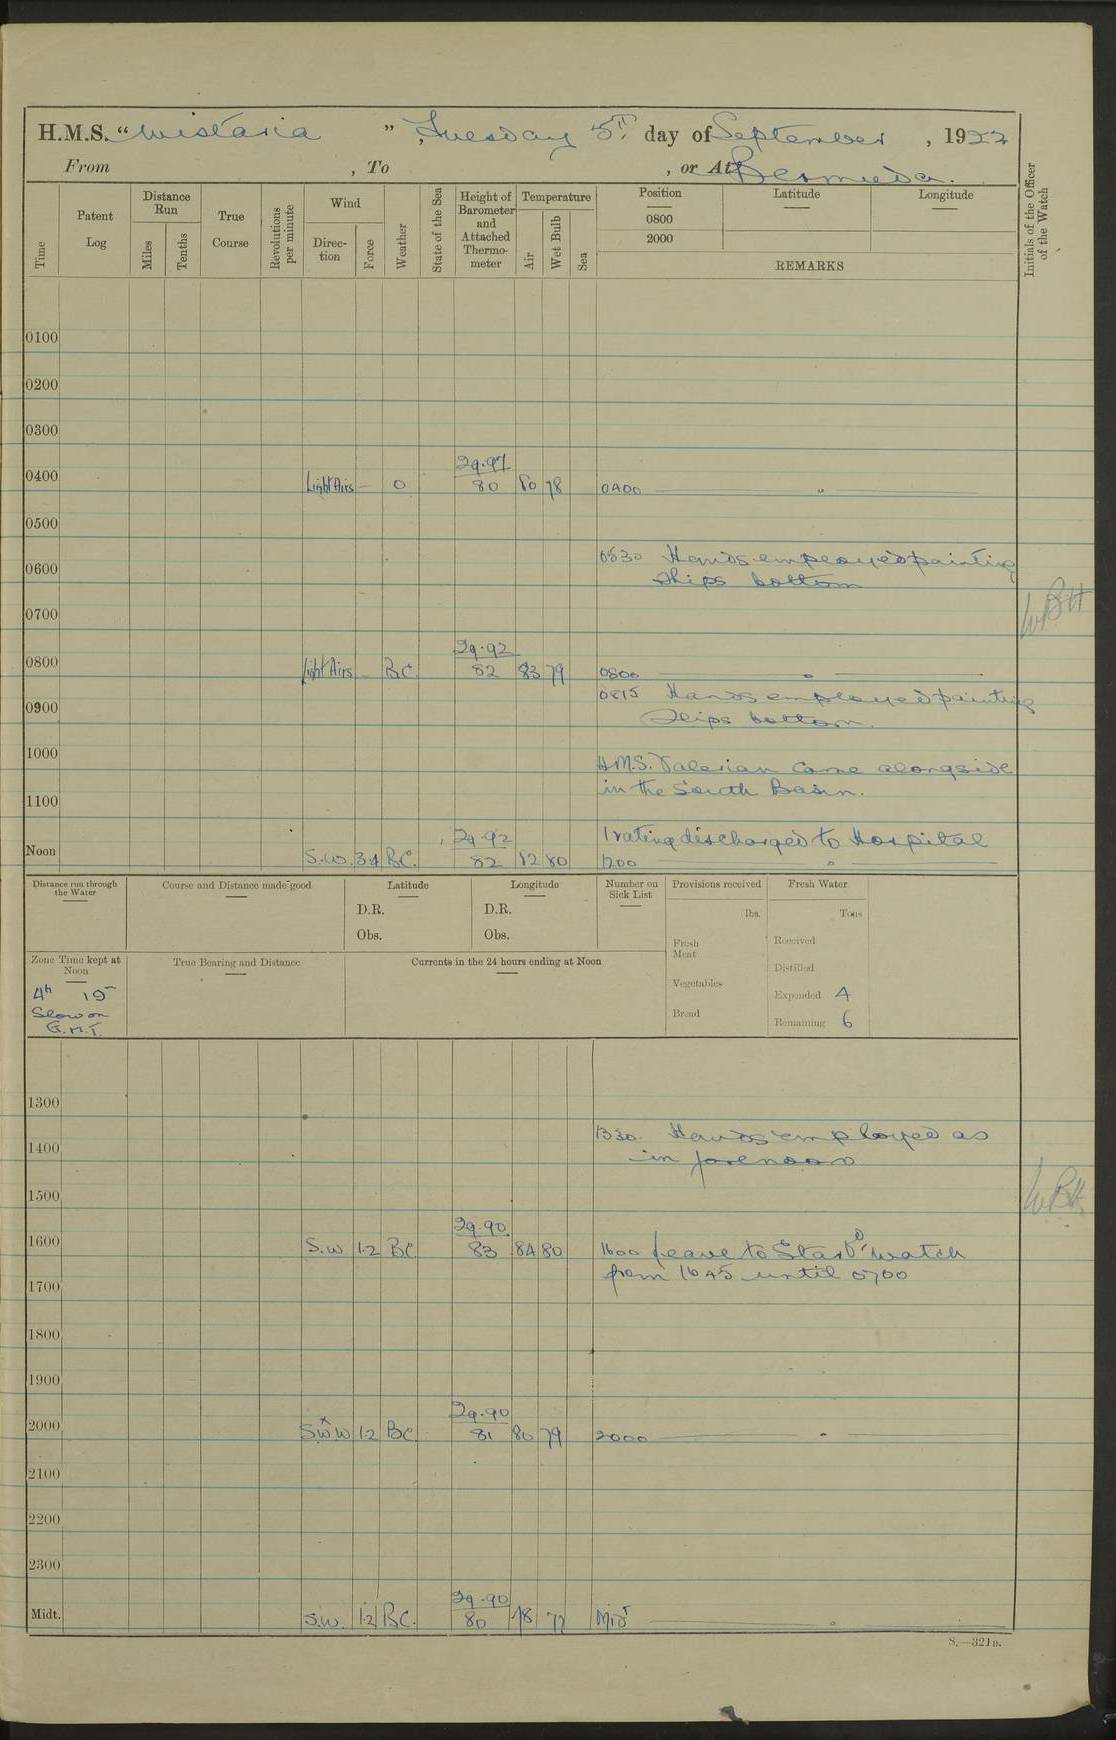 H.M.S. “Wistaria”, Tuesday 5th day of September, 1922
From , To , or At Bermuda.
Time
Patent Log
Distance Run
Miles
Tenths
True Course
Revolutions per minute
Wind
Direction
Force
Weather
State of the Sea
Height of Barometer and Attached Thermometer
Temperature
Air
Wet Bulb
Sea
Position
0800
2000
Latitude
Longitude
REMARKS
Initials of the Officer of the Watch
0100
0200
0300
29.97
0400 Light Airs – O 80 80 78 0400 "
0500
0530 Hands employed painting
0600 ships bottom
WBH
0700
29.92
0800 Light Airs – BC 82 83 79 0800 "
0815 Hands employed painting
0900 Ships bottom.
1000 H.M.S. Valerian came alongside
in the South Basin.
1100
29.92 1 rating discharged to Hospital
Noon S.W. 3.4 BC. 82 82 80 1200 "
Distance run through the Water
Course and Distance made good
Latitude
D.R.
Obs.
Longitude
D.R.
Obs.
Number on Sick List
Provisions received
lbs.
Fresh Meat
Vegetables
Bread
Fresh Water
Tons
Received
Distilled
Expended 4
Remaining 6
Zone Time kept at Noon
4h 19
Slow on
G.M.T.
True Bearing and Distance
Currents in the 24 hours ending at Noon
1300
1330. Hands employed as
1400 in forenoon
1500
WBH
29.90
1600 S.W 1.2 BC 83 84 80 1600 Leave to Starbd watch
from 1645 until 0700
1700
1800
1900
29.90
2000 SWxW 1.2 BC 81 80 79 2000 "
2100
2200
2300
29.90
Midt. S.W. 1.2 BC. 80 78 77 Midt "
S.—321B.